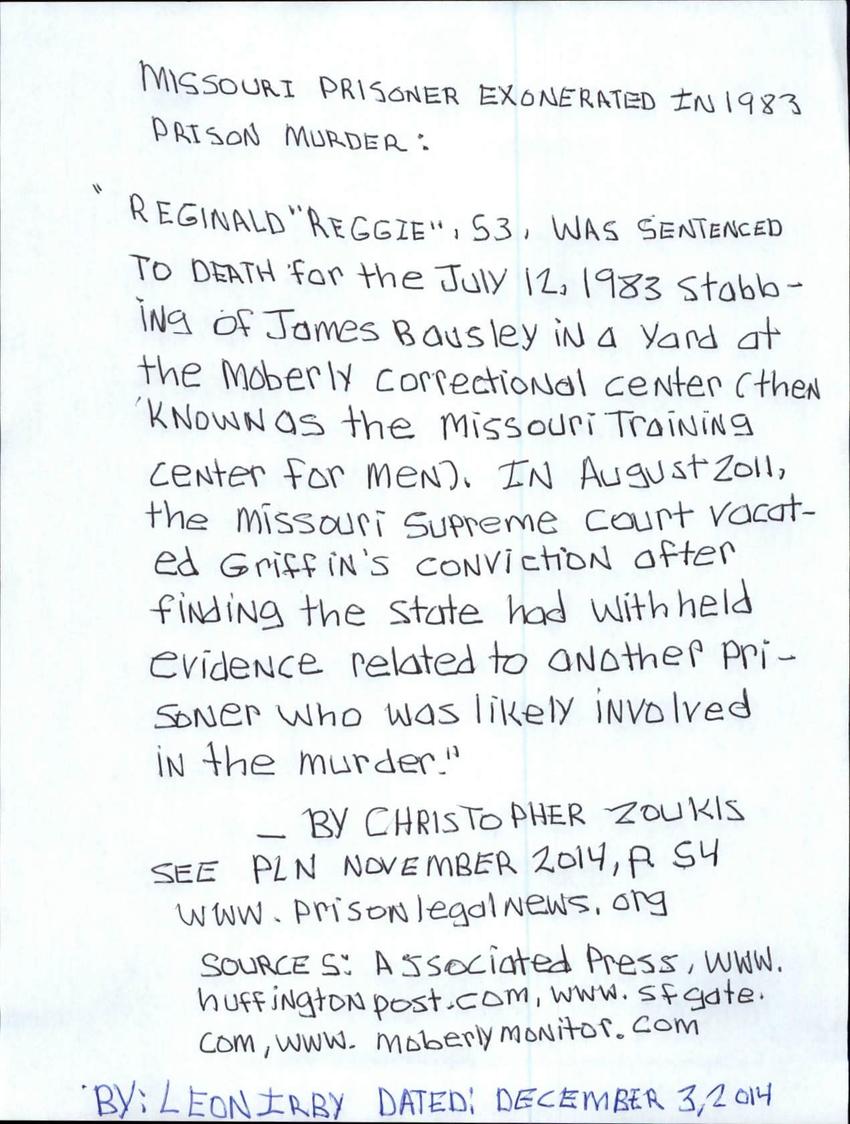 MISSOURI PRISONER EXONERATED IN 1983
PRISON MURDER:
"REGINALD "REGGIE", 53, WAS SENTENCED
TO DEATH for the JULY 12, 1983 Stabb-
iNg of James Bausley iN a Yard at
the Moberly Correctional center (then
KNOWN as the Missouri Training
CENter for MEN). IN August 2011,
the Missouri Supreme Court vacat-
ed Griffin's CONViction after
finding the State had with held
evidence related to another pri-
soner who was likely involved
iN the murder."
— BY CHRISTOPHER ZOUKIS
SEE PLN NOVEMBER 2014, P. 54
WWW.prisonlegalNews.org
SOURCES: Associated Press, WWW.
huffingtonpost.com, WWW.sfgate.
com, WWW.moberlymonitor.com
BY: LEON IRBY DATED: DECEMBER 3, 2014